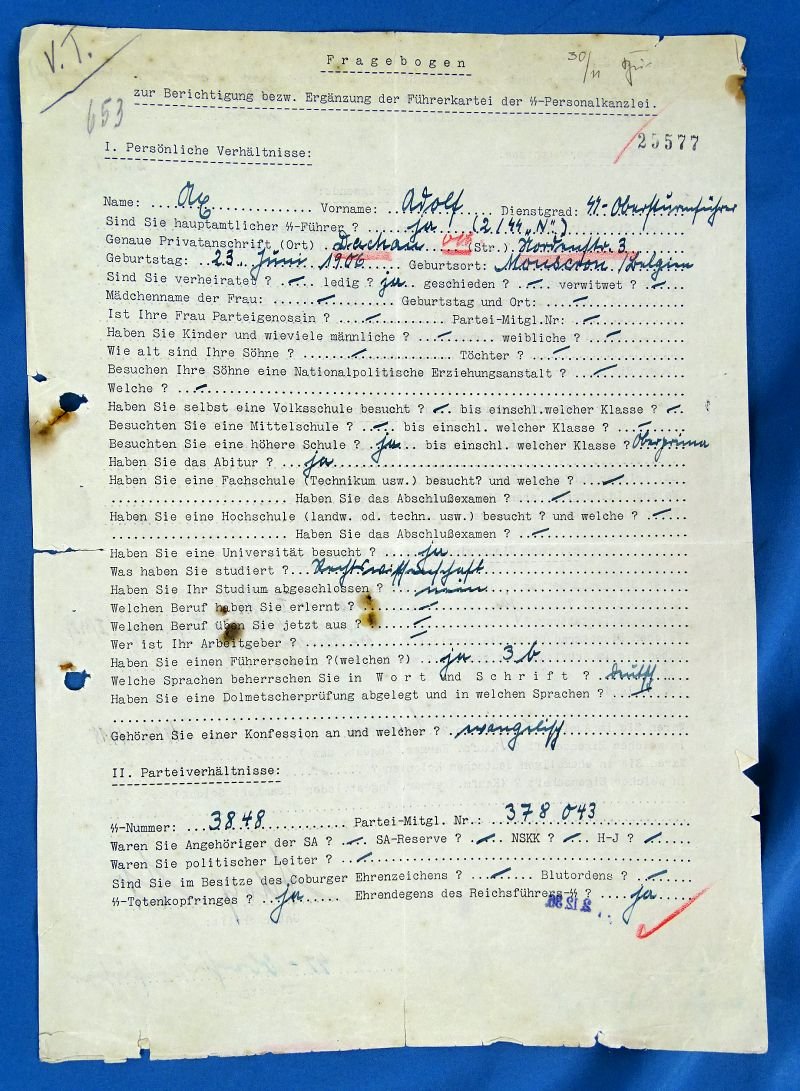 V.T.
Fragebogen
30/11
zur Berichtigung bezw. Ergänzung der Führerkartei der ϟϟ-Personalkanzlei.
653
25577
I. Persönliche Verhältnisse:
Name: ...Ax............... Vorname: ..Adolf.... Dienstgrad: ϟϟ-Obersturmführer
Sind Sie hauptamtlicher ϟϟ-Führer ? .....ja ...(2/ϟϟ „N“)
Genaue Privatanschrift (Ort) .Dachau...(Str.).Nordenstr. 3
Geburtstag: ..23. Juni 1906.... Geburtsort: Mouscron /Belgien
Sind Sie verheiratet ? .-.. ledig ? ja.. geschieden ? .-.. verwitwet ? .-..
Mädchenname der Frau: .....-....... Geburtstag und Ort: ....-............
Ist Ihre Frau Parteigenossin ? ....-........ Partei-Mitgl.Nr: .-...........
Haben Sie Kinder und wieviele männliche ? ...-...... weibliche ? ..-.......
Wie alt sind Ihre Söhne ? ......-........... Töchter ? ...-...............
Besuchen Ihre Söhne eine Nationalpolitische Erziehungsanstalt ? ..-........
Welche ? ..-..............................................................
Haben Sie selbst eine Volksschule besucht ? .-. bis einschl.welcher Klasse ? .-.
Besuchten Sie eine Mittelschule ? ..-.. bis einschl. welcher Klasse ? ...-.....
Besuchten Sie eine höhere Schule ? .ja... bis einschl. welcher Klasse ? Oberprima
Haben Sie das Abitur ? ...ja..............................................
Haben Sie eine Fachschule (Technikum usw.) besucht? und welche ? ....-.........
....................... Haben Sie das Abschlußexamen ? .....-...............
Haben Sie eine Hochschule (landw. od. techn. usw.) besucht ? und welche ? .-....
....................... Haben Sie das Abschlußexamen ? ..-..................
Haben Sie eine Universität besucht ? .....ja..............................
Was haben Sie studiert ?...Rechtswissenschaft.............................
Haben Sie Ihr Studium abgeschlossen ? ....nein............................
Welchen Beruf haben Sie erlernt ? .......-................................
Welchen Beruf üben Sie jetzt aus ? ......-................................
Wer ist Ihr Arbeitgeber ? ...............-................................
Haben Sie einen Führerschein ?(welchen ?) ...ja....3 b....................
Welche Sprachen beherrschen Sie in Wort und Schrift ? .deutsch....
Haben Sie eine Dolmetscherprüfung abgelegt und in welchen Sprachen ? ..-.......
..........................................................................
Gehören Sie einer Konfession an und welcher ? ..evangelisch...............
II. Parteiverhältnisse:
ϟϟ-Nummer: ...3848........... Partei-Mitgl. Nr.: ..378 043................
Waren Sie Angehöriger der SA ? .-. SA-Reserve ? .-.. NSKK ? .-.. H-J ? .-....
Waren Sie politischer Leiter ? .-.........................................
Sind Sie im Besitze des Coburger Ehrenzeichens ? ...-.... Blutordens ? .-.....
ϟϟ-Totenkopfringes ? ..ja..... Ehrendegens des Reichsführers-ϟϟ ? ....ja......
2.12.36